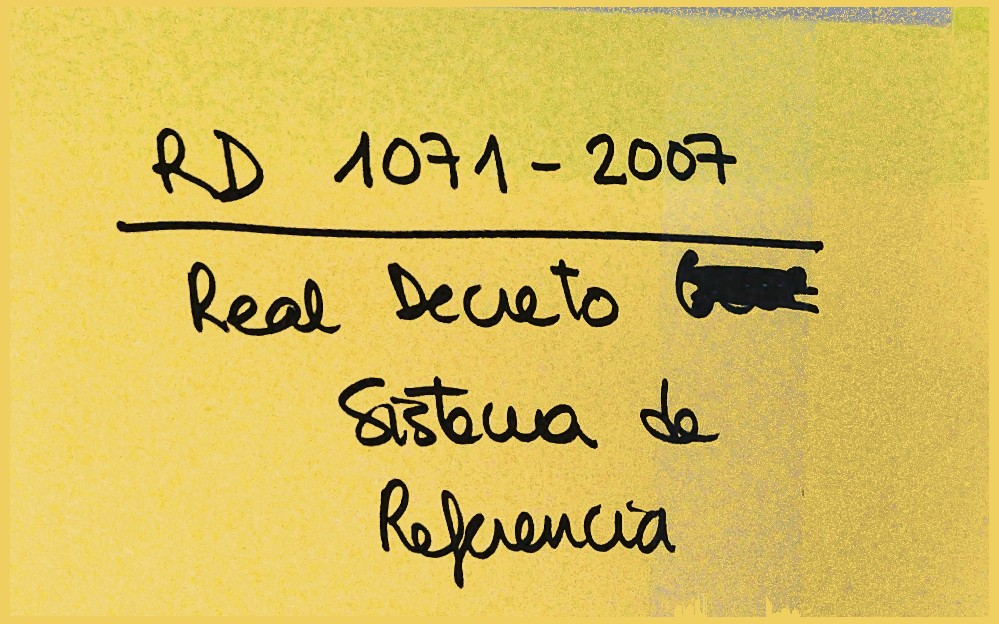 RD 1071-2007
Real Decreto
Sistema de
Referencia